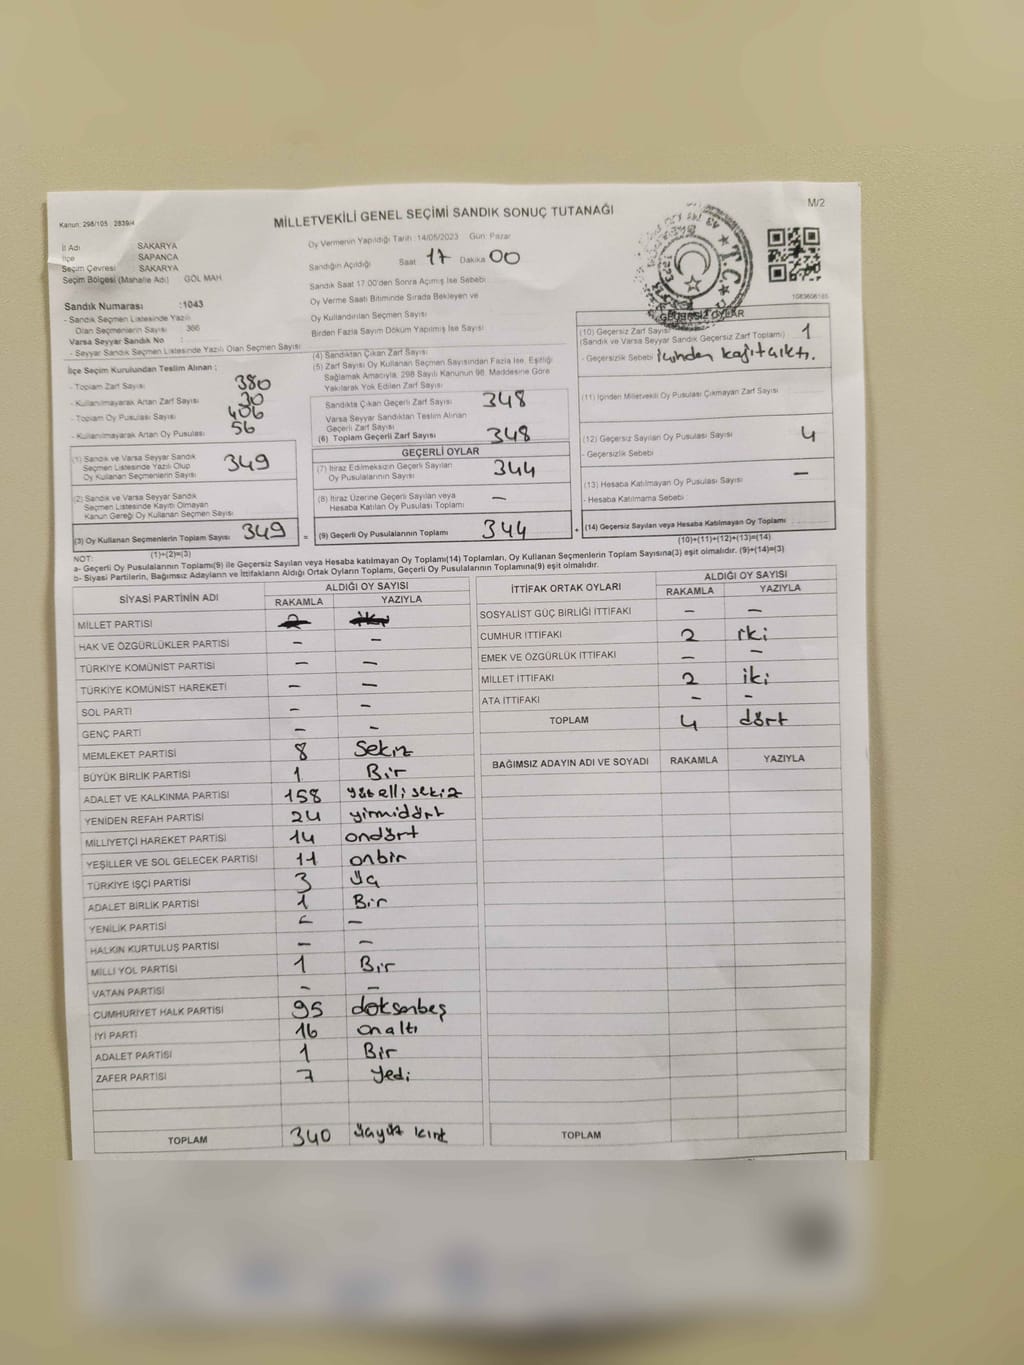 Kanun: 298/105 2839/4
MİLLETVEKİLİ GENEL SEÇİMİ SANDIK SONUÇ TUTANAĞI
M/2
İl Adı SAKARYA
İlçe SAPANCA
Seçim Çevresi : SAKARYA
Seçim Bölgesi (Mahalle Adı) GÖL MAH
Sandık Numarası :1043
- Sandık Seçmen Listesinde Yazılı
Olan Seçmenlerin Sayısı 366
Varsa Seyyar Sandık No :
- Seyyar Sandık Seçmen Listesinde Yazılı Olan Seçmen Sayısı
Oy Vermenin Yapıldığı Tarih :14/05/2023 Gün: Pazar
Sandığın Açıldığı Saat 17 Dakika 00
Sandık Saat 17.00'den Sonra Açımış İse Sebebi
Oy Verme Saati Bitiminde Sırada Bekleyen ve
Oy Kullandırılan Seçmen Sayısı
Birden Fazla Sayım Döküm Yapılmış İse Sayısı
T.C.
1083606165
İlçe Seçim Kurulundan Teslim Alınan :
- Toplam Zarf Sayısı 380
- Kullanılmayarak Artan Zarf Sayısı 30
- Toplam Oy Pusulası Sayısı 406
- Kullanılmayarak Artan Oy Pusulası 56
(1) Sandık ve Varsa Seyyar Sandık
Seçmen Listesinde Yazılı Olup
Oy Kullanan Seçmenlerin Sayısı 349
(2) Sandık ve Varsa Seyyar Sandık
Seçmen Listesinde Kaydı Olmayan
Kanun Gereği Oy Kullanan Seçmen Sayısı
(3) Oy Kullanan Seçmenlerin Toplam Sayısı 349
(1)+(2)=(3)
(4) Sandıktan Çıkan Zarf Sayısı
(5) Zarf Sayısı Oy Kullanan Seçmen Sayısından Fazla İse, Eşitliği
Sağlamak Amacıyla, 298 Sayılı Kanunun 98. Maddesine Göre
Yakılarak Yok Edilen Zarf Sayısı
Sandıkta Çıkan Geçerli Zarf Sayısı 348
Varsa Seyyar Sandıktan Teslim Alınan
Geçerli Zarf Sayısı
(6) Toplam Geçerli Zarf Sayısı 348
GEÇERLİ OYLAR
(7) İtiraz Edilmeksizin Geçerli Sayılan
Oy Pusulalarının Toplamı 344
(8) İtiraz Üzerine Geçerli Sayılan veya
Hesaba Katılan Oy Pusulası Toplamı –
= (9) Geçerli Oy Pusulalarının Toplamı 344
GEÇERSİZ OYLAR
(10) Geçersiz Zarf Sayısı
(Sandık ve Varsa Seyyar Sandık Geçersiz Zarf Toplamı) 1
- Geçersizlik Sebebi içinden kağıt çıktı.
(11) İçinden Milletvekili Oy Pusulası Çıkmayan Zarf Sayısı
(12) Geçersiz Sayılan Oy Pusulası Sayısı 4
- Geçersizlik Sebebi
(13) Hesaba Katılmayan Oy Pusulası Sayısı –
- Hesaba Katılmama Sebebi
+ (14) Geçersiz Sayılan veya Hesaba Katılmayan Oy Toplamı
(10)+(11)+(12)+(13)=(14)
NOT:
a- Geçerli Oy Pusulalarının Toplamı(9) ile Geçersiz Sayılan veya Hesaba katılmayan Oy Toplamı(14) Toplamları, Oy Kullanan Seçmenlerin Toplam Sayısına(3) eşit olmalıdır. (9)+(14)=(3)
b- Siyasi Partilerin, Bağımsız Adayların ve İttifakların Aldığı Ortak Oyların Toplamı, Geçerli Oy Pusulalarının Toplamına(9) eşit olmalıdır.
SİYASİ PARTİNİN ADI ALDIĞI OY SAYISI
RAKAMLA YAZIYLA
MİLLET PARTİSİ 2 iki
HAK VE ÖZGÜRLÜKLER PARTİSİ – –
TÜRKİYE KOMÜNİST PARTİSİ – –
TÜRKİYE KOMÜNİST HAREKETİ – –
SOL PARTİ – –
GENÇ PARTİ – –
MEMLEKET PARTİSİ 8 Sekiz
BÜYÜK BİRLİK PARTİSİ 1 Bir
ADALET VE KALKINMA PARTİSİ 158 yüzellisekiz
YENİDEN REFAH PARTİSİ 24 yirmidört
MİLLİYETÇİ HAREKET PARTİSİ 14 ondört
YEŞİLLER VE SOL GELECEK PARTİSİ 11 onbir
TÜRKİYE İŞÇİ PARTİSİ 3 üç
ADALET BİRLİK PARTİSİ 1 Bir
YENİLİK PARTİSİ – –
HALKIN KURTULUŞ PARTİSİ – –
MİLLİ YOL PARTİSİ 1 Bir
VATAN PARTİSİ – –
CUMHURİYET HALK PARTİSİ 95 doksanbeş
İYİ PARTİ 16 onaltı
ADALET PARTİSİ 1 Bir
ZAFER PARTİSİ 7 yedi
TOPLAM 340 üçyüz kırk
İTTİFAK ORTAK OYLARI ALDIĞI OY SAYISI
RAKAMLA YAZIYLA
SOSYALİST GÜÇ BİRLİĞİ İTTİFAKI – –
CUMHUR İTTİFAKI 2 iki
EMEK VE ÖZGÜRLÜK İTTİFAKI – –
MİLLET İTTİFAKI 2 iki
ATA İTTİFAKI – –
TOPLAM 4 dört
BAĞIMSIZ ADAYIN ADI VE SOYADI RAKAMLA YAZIYLA
TOPLAM